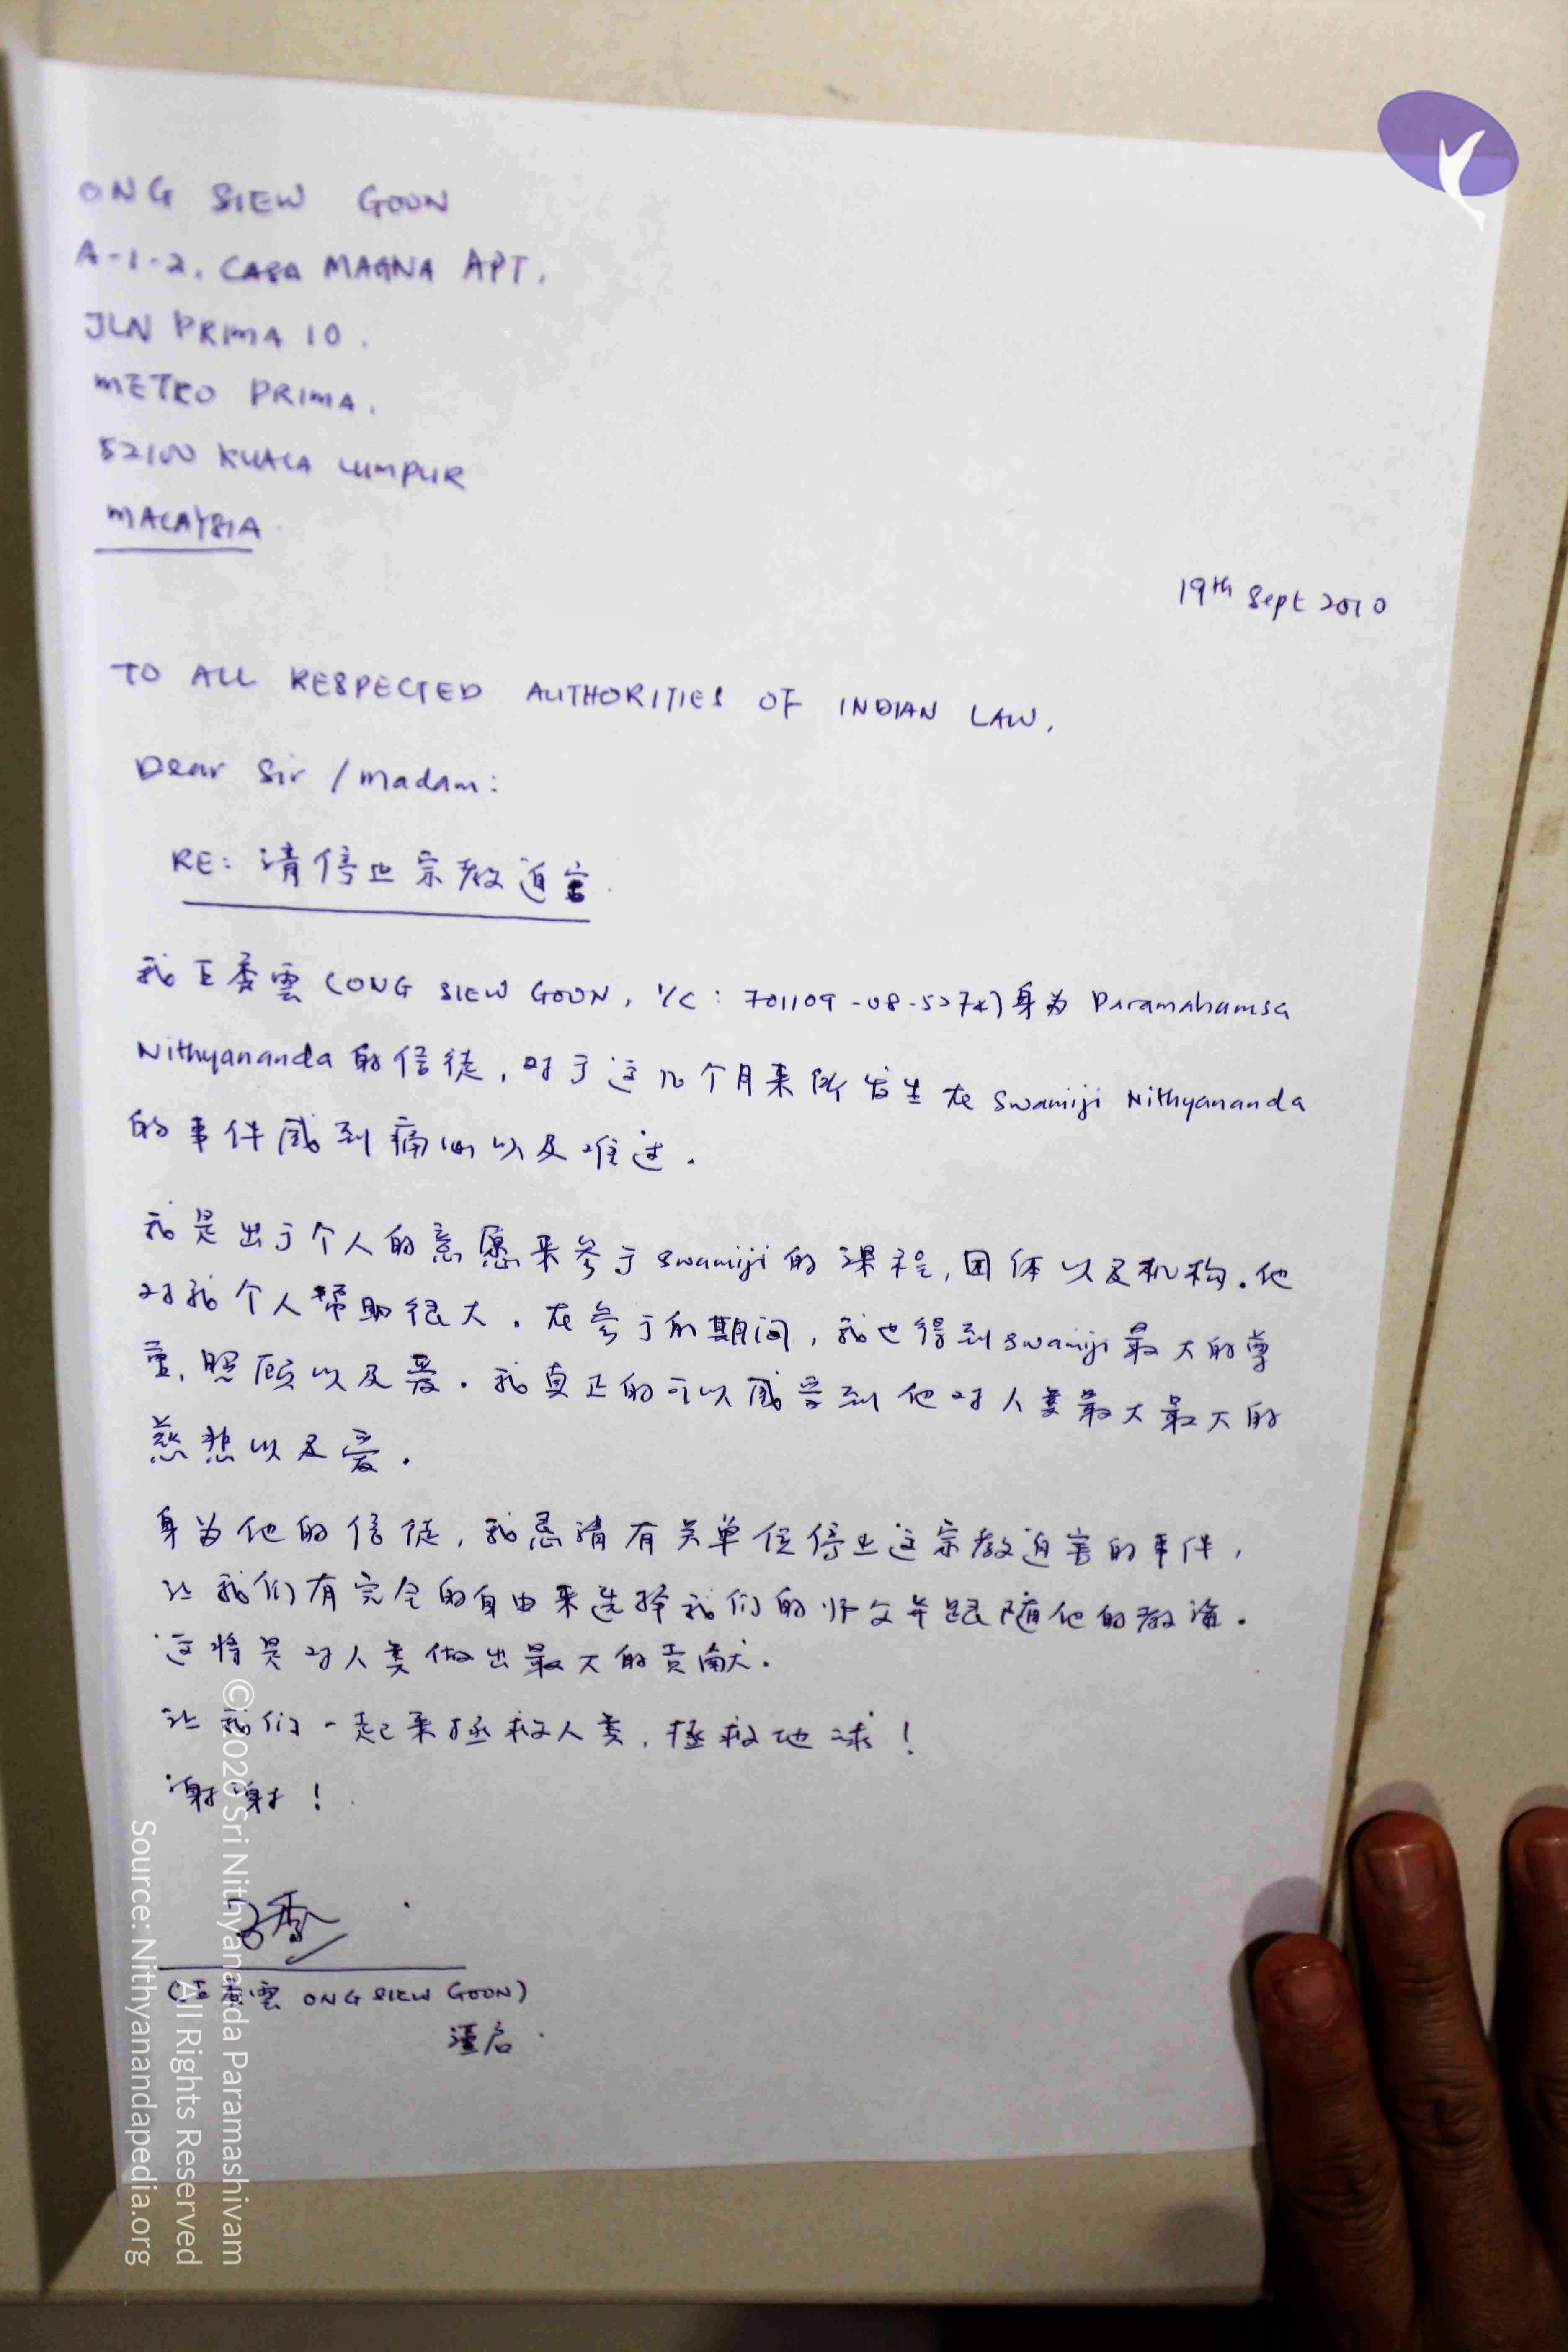 ONG SIEW GOON
A-1-2, CASA MAGNA APT.
JLN PRIMA 10.
METRO PRIMA.
52100 KUALA LUMPUR
MALAYSIA
19th Sept 2010
TO ALL RESPECTED AUTHORITIES OF INDIAN LAW,
Dear Sir / madam:
RE: 请停止宗教迫害.
我王秀雲 (ONG SIEW GOON, I/C : 701109-08-527*) 身为 Paramahamsa
Nithyananda 的信徒, 对于这几个月来所发生在 Swamiji Nithyananda
的事件感到痛心以及难过.
我是出于个人的意愿来参于 swamiji 的课程, 团体以及机构. 他
对我个人帮助很大. 在参于的期间, 我也得到 swamiji 最大的尊
重, 照顾以及爱. 我真正的可以感受到他对人类最大最大的
慈悲以及爱.
身为他的信徒, 我恳请有关单位停止这宗教迫害的事件,
让我们有完全的自由来选择我们的师父并跟随他的教诲.
这将是对人类做出最大的贡献.
让我们一起来拯救人类, 拯救地球!
谢谢!
(王秀雲 ONG SIEW GOON)
谨启.
©2020 Sri Nithyananda Paramashivam
All Rights Reserved
Source: Nithyanandapedia.org